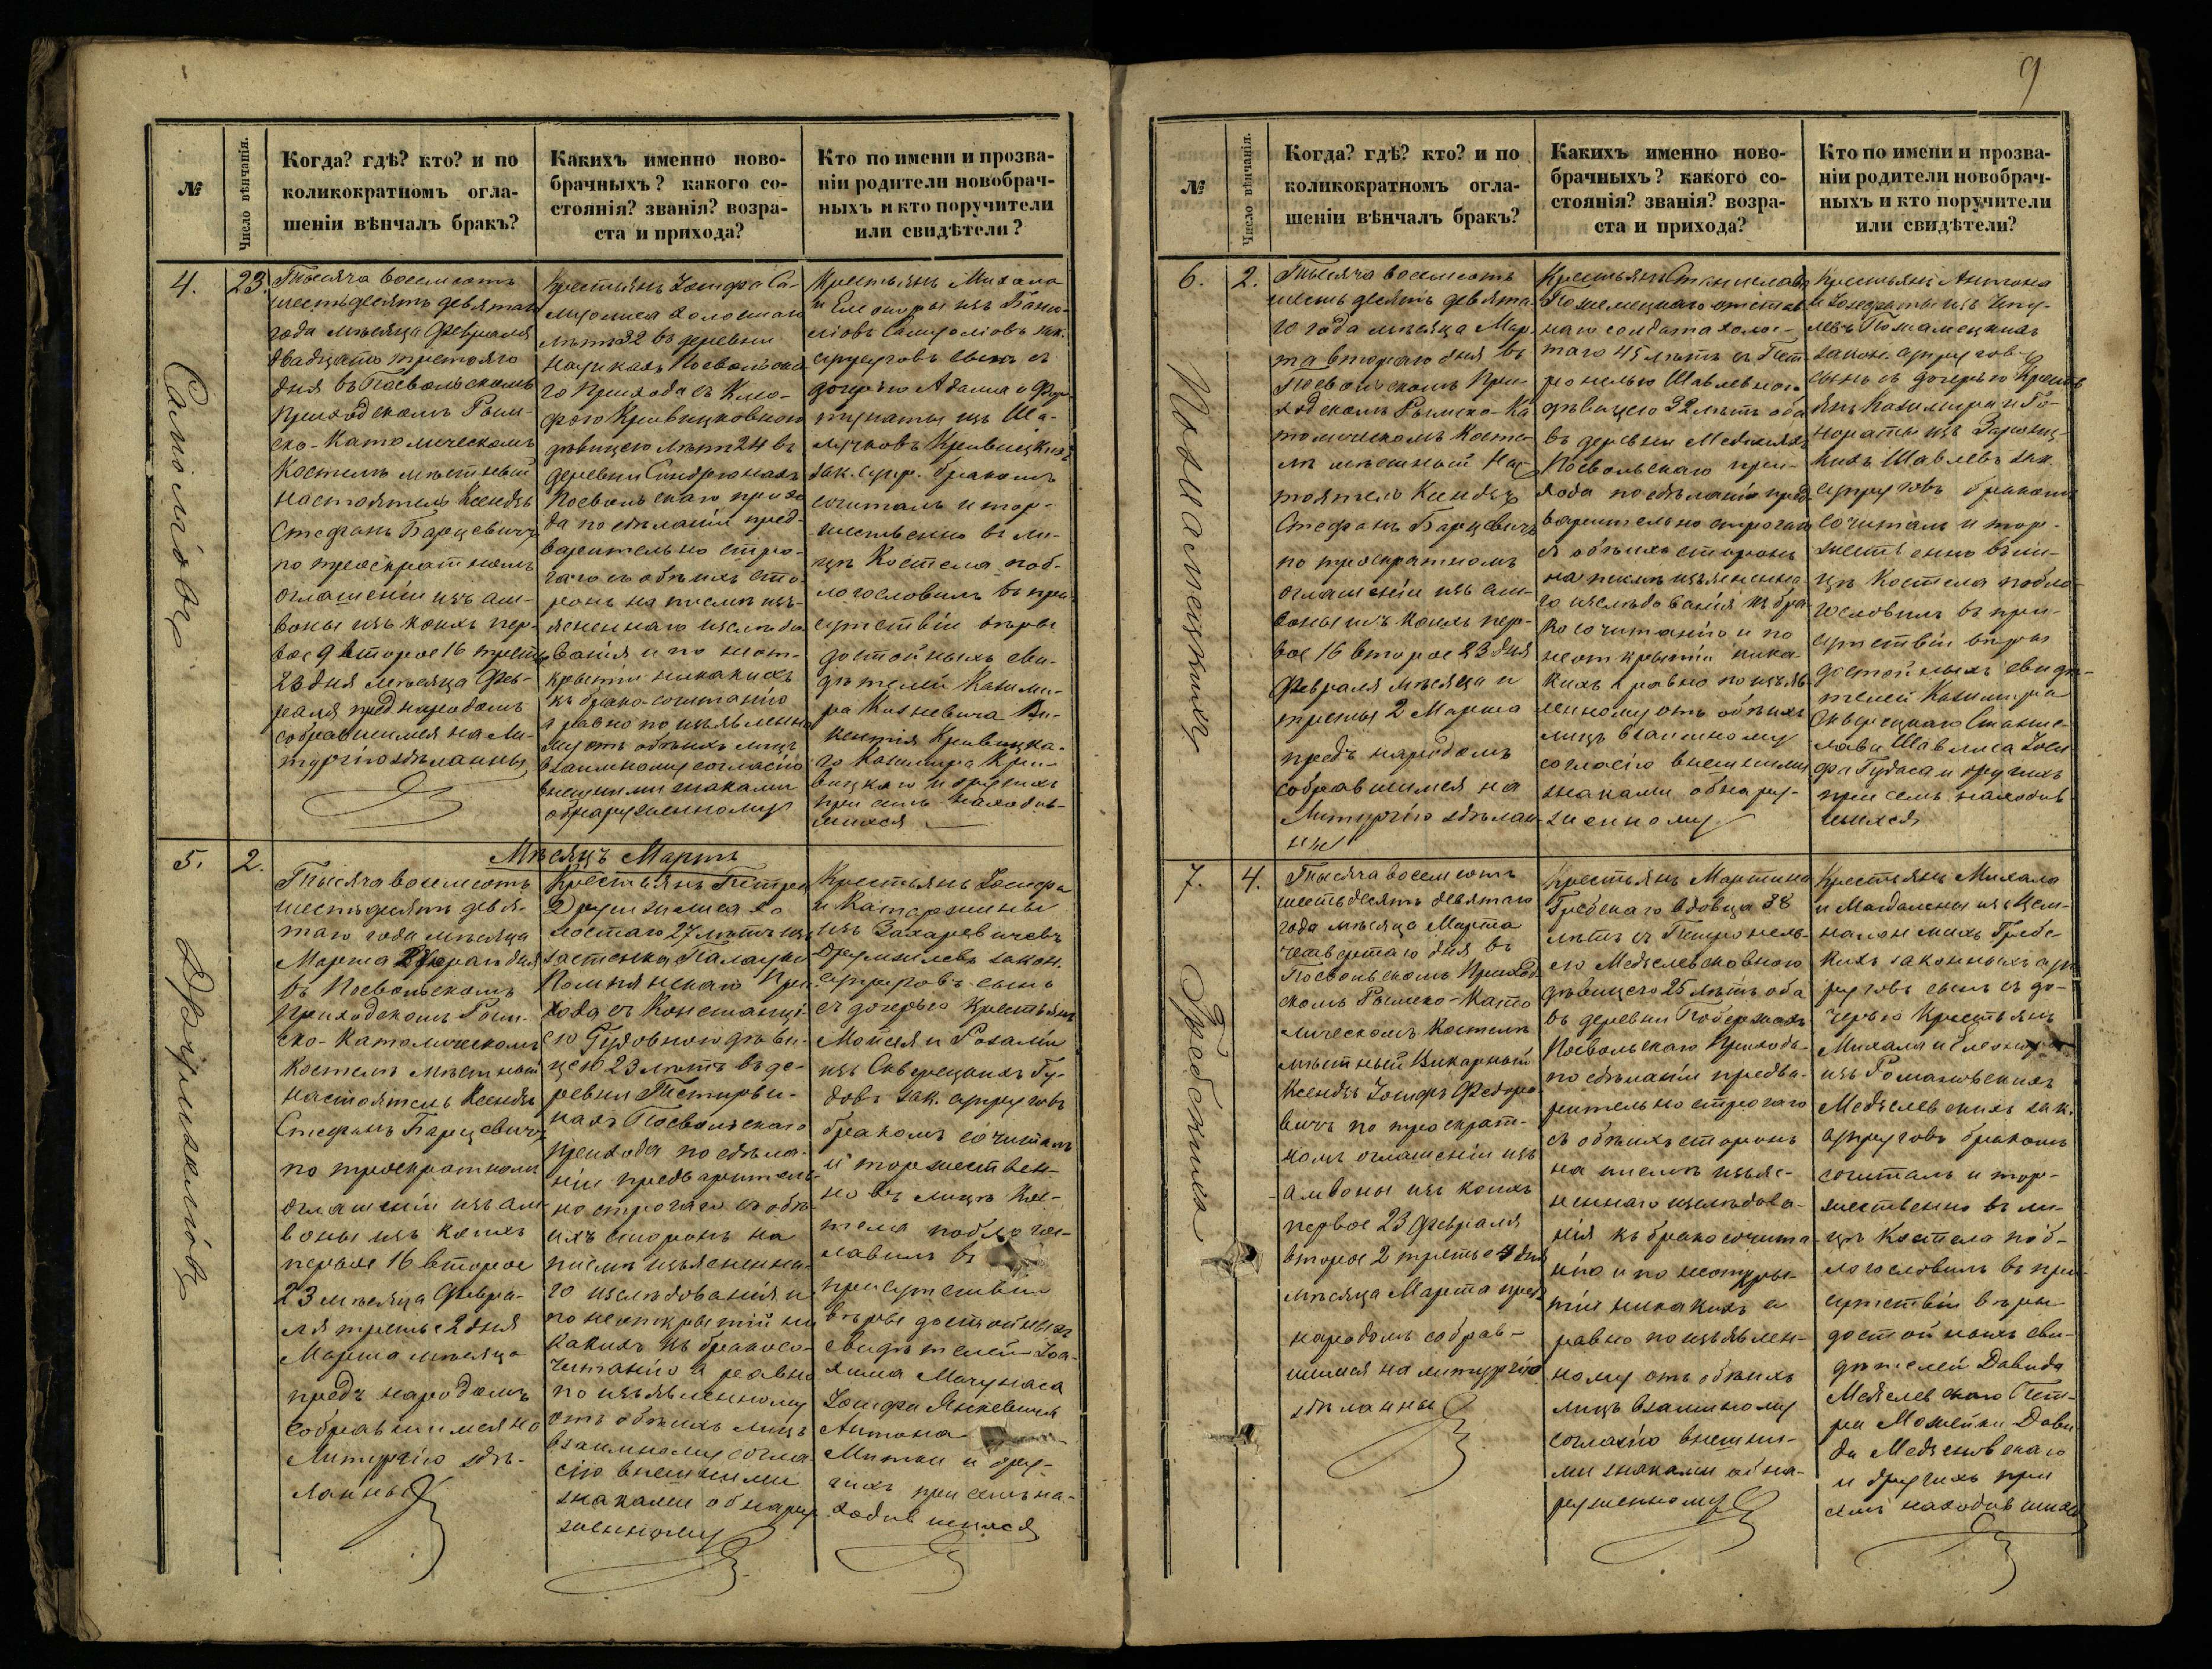 №
Число вѣнчанія.
Когда? гдѣ? кто? и по
коликократномъ огла-
шеніи вѣнчалъ бракъ?
Какихъ именно ново-
брачныхъ? какого со-
стоянія? званія? возра-
ста и прихода?
Кто по имени и прозва-
ніи родители новобрач-
ныхъ и кто поручители
или свидѣтели?
4.
23.
Тысяча восемсотъ
шестьдесятъ девятаго
года мѣсяца Февраля
двадцать третьяго
дня въ Посвольскомъ
Приходскомъ Рим-
ско-Католическомъ
Костелѣ мѣстный
настоятель Ксендзъ
Стефанъ Барцевичъ
по троекратномъ
оглашеніи изъ ам-
воны изъ коихъ пер-
вое 9 второе 16 третье
23 дня мѣсяца Фев-
раля предъ народомъ
собравшимся на Ли-
тургію сдѣланны
лѣтъ 32 въ деревни
го Прихода съ
дѣвицею лѣтъ 24 въ
деревни
Посвольскаго прихо
да по сдѣланіи пред-
варительно стро-
гаго съ обѣихъ сто-
ронъ на письмѣ изъ-
ясненнаго изслѣдо
ванія и по неот-
крытіи никакихъ
къ брако-сочитанію
а равно по изъявленно
му отъ обѣихъ лицъ
взаимному согласію
внешними знаками
обнаруженному
Крестьянъ Михала
и Елеоноры изъ
супруговъ сынъ съ
дочерью Адама и
зак. супр. бракомъ
сочиталъ и тор-
жественно въ ли-
цѣ Костела поб-
лагословилъ въ при
сутствіи вѣры
достойныхъ сви-
дѣтелей Казими-
ра
кентія Кривицка-
го Казимира Кри-
вицкаго и другихъ
при семъ находив-
шихся
5.
2.
Мѣсяцъ Мартъ
Тысяча восемсотъ
шестьдесятъ девя-
таго года мѣсяца
Марта дня
въ Посвольскомъ
Приходскомъ Рим-
ско-Католическомъ
Костелѣ мѣстный
настоятель Ксендзъ
Стефанъ Барцевичъ
по троекратномъ
оглашеніи изъ ам
воны изъ коихъ
первое 16 второе
23 мѣсяца Февра-
ля третье 2 дня
Марта мѣсяца
предъ народомъ
собравшимся на
Литургію сдѣ-
ланны
Крестьянъ Петра
хо
лостаго 27 лѣтъ изъ
застенка
При
хода съ Констанці-
ею Гудовною дѣви-
цею 23 лѣтъ въ де-
ревни
нахъ Посвольскаго
прихода по сдѣла-
ніи предварительн-
но строгаго съ обѣ-
ихъ сторонъ на
письмѣ изъясненна-
го изслѣдованія и
по неоткрытіи ни
какихъ къ бракосо-
читанію а равно
по изъявленному
отъ обѣихъ лицъ
взаимному согла
сію внешними
знаками обнару
женному
Крестьянъ Іосифа
и Катаржины
изъ Захаревичевъ
закон.
супруговъ сынъ
съ дочерью Крестьянъ
Мойсея и Розаліи
изъ Гу-
довъ зак. супруговъ
бракомъ сочиталъ
и торжествен-
но въ лицѣ Кос-
тела поблагос-
ловилъ въ
присутствіи
вѣры достойныхъ
свидѣтелей Іоа-
хима Мачунаса
Іосифа Янкевича
Антона
Митки и дру-
гихъ при семъ на-
ходившихся
9
№
Число вѣнчанія.
Когда? гдѣ? кто? и по
коликократномъ огла-
шеніи вѣнчалъ бракъ?
Какихъ именно ново-
брачныхъ? какого со-
стоянія? званія? возра-
ста и прихода?
Кто по имени и прозва-
ніи родители новобрач-
ныхъ и кто поручители
или свидѣтели?
6.
2.
Тысяча восемсотъ
шестьдесятъ девята-
го года мѣсяца Мар-
та втораго дня въ
Посвольскомъ При-
ходскомъ Римско-Ка
толическомъ Косте-
лѣ мѣстный Нас
тоятель Ксендзъ
Стефанъ Барцевичъ
по троекратномъ
оглашеніи изъ ам-
воны изъ коихъ пер-
вое 16 второе 23 дня
Февраля мѣсяца и
третье 2 Марта
предъ народомъ
собравшимся на
Литургію сдѣлан
ны
Крестьянъ Станислава
отстав
наго солдата холос-
таго 45 лѣтъ съ Пет
ронелью Шавлевною
дѣвицею 32 лѣтъ оба
въ деревни
Посвольскаго при-
хода по сдѣланіи пред
варительно строгаго
съ обѣихъ сторонъ
на письмѣ изъясненна
го изслѣдованія къ бра-
косочитанію и по
неоткрытіи ника-
кихъ а равно по изъяв
ленному отъ обѣихъ
лицъ взаимному
согласію внешними
знаками обнару-
женному
Крестьянъ Антона
и
закон. супруговъ
сынъ съ дочерью Кресть
янъ Казимира и Го-
нораты изъ
кихъ Шавлевъ зак.
супруговъ бракомъ
сочиталъ и тор-
жественно въ ли-
цѣ Костела побла
гословилъ въ при-
сутствіи вѣры
достойныхъ свидѣ-
телей Казимира
Скверецкаго Станис-
лава Шавлиса Іоси
фа Гудаса и другихъ
при семъ находив
шихся
7.
4.
Гребскина
Тысяча восемсотъ
шестьдесятъ девятаго
года мѣсяца Марта
четвертаго дня въ
Посвольскомъ Приход
скомъ Римско-Като
лическомъ Костелѣ
мѣстный Викарный
Ксендзъ Іосифъ Федоро
вичъ по троекрат-
номъ оглашеніи изъ
амвоны изъ коихъ
первое 23 Февраля
второе 2 третье 4 дня
мѣсяца Марта предъ
народомъ собрав-
шимся на литургію
сдѣланны
Крестьянъ Мартина
Гребскаго вдовца 38
лѣтъ съ Петронель-
ею
дѣвицею 25 лѣтъ оба
въ деревни
Посвольскаго Прихода
по сдѣланіи предва-
рительно строгаго
съ обѣихъ сторонъ
на письмѣ изъяс-
неннаго изслѣдова-
нія къ бракосочита
нію и по неоткры-
тіи никакихъ а
равно по изъявлен-
ному отъ обѣихъ
лицъ взаимному
согласію внешни-
ми знаками обна-
руженному
Крестьянъ Михала
и Магдалены изъ
Гребс
кихъ законныхъ суп
руговъ сынъ съ до-
черью Крестьянъ
Михала и Елеоноры
изъ Романовскихъ
зак.
супруговъ бракомъ
сочиталъ и тор-
жественно въ ли-
цѣ Костела поб-
лагословилъ въ при
сутствіи вѣры
достойныхъ сви-
дѣтелей Давида
Пет-
ра Можейки Дави
да
и другихъ при
семъ находившихся